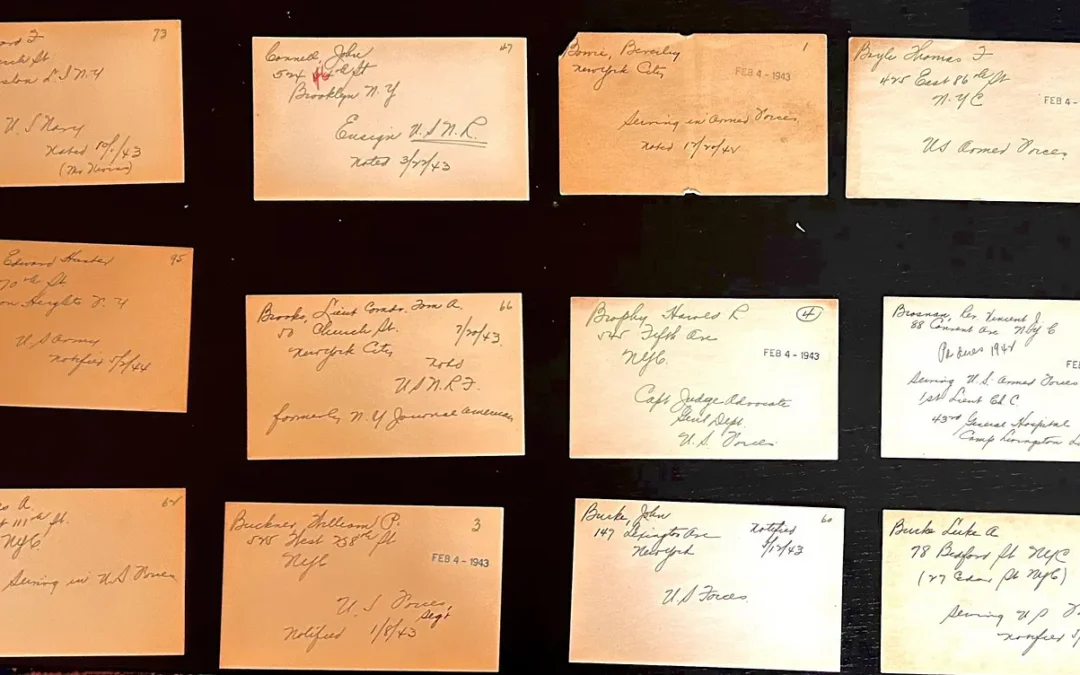 73
U S Navy
Noted 10/1/43
47
Connell, John
524 46 th St
Brooklyn N. Y
Ensign U.S.N.R.
Noted 3/22/43
1
Bowie, Beverley
New York City
FEB 4 - 1943
Serving in Armed Forces.
Noted 12/20/42
Boyle Thomas F
425 East 86 th St
N. Y C
FEB 4 -
US Armed Forces.
95
Edward Hunter
70 th St
Heights N. Y
U S Army
Notified 5/2/44
66
Brooks, Lieut Comdr. Tom A.
50 Church St.
New York City
7/20/43.
Noted
USN.R F.
formerly N. Y Journal American
4
Brophy Harold R
545 Fifth Ave
NYC.
FEB 4 - 1943
Capt Judge Advocate
Genl Dept.
U. S Forces.
Brosnan, Rev Vincent J.
88 Convent Ave N Y C
1942
Serving U.S. Armed Forces
1st Lieut Ch C
43rd General Hospital
Camp Livingston
A.
111 th St.
NYC.
Serving in US Forces
3
Buckner, William P.
525 West 238 th St
NYC
FEB 4 - 1943
U. S Forces,
Segt
Notified 1/8/43
60
Burke, John
147 Lexington Ave
New York
Notified
US Forces.
Burke Luke A
78 Bedford St NYC
(27 Cedar St NYC)
Serving US
Notified